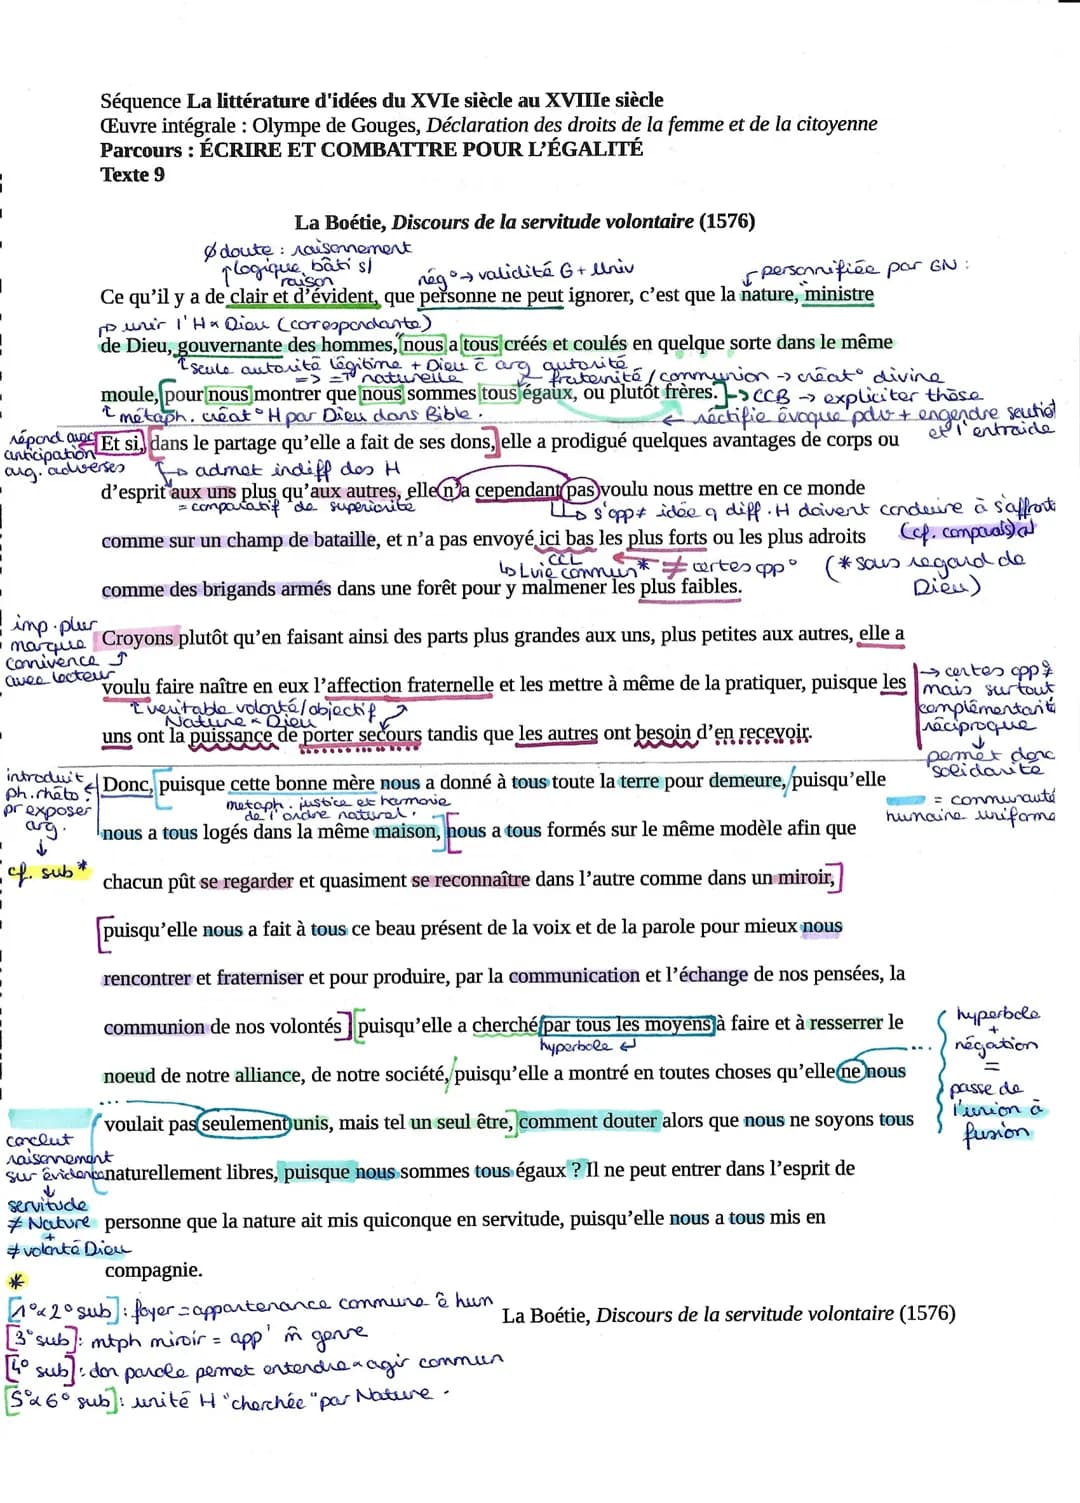 Séquence La littérature d'idées du XVIe siècle au XVIIIe siècle
Œuvre intégrale : Olympe de Gouges, Déclaration des droits de la femme et de la citoyenne
Parcours : ÉCRIRE ET COMBATTRE POUR L'ÉGALITÉ
Texte 9
La Boétie, Discours de la servitude volontaire (1576)
Ødoute : raisonnement
logique, bâti s/
raison
nég° → validité G + Univ
personnifiée par GN :
Ce qu'il y a de clair et d'évident, que personne ne peut ignorer, c'est que la nature, ministre
unir l'H & Dieu (correspondante)
de Dieu, gouvernante des hommes, nous a tous créés et coulés en quelque sorte dans le même
seule autorité légitime + Dieu c arg autorité
=> = naturelle
fraternité / communion → créat° divine
moule, pour nous montrer que nous sommes tous égaux, ou plutôt frères. → CCB → expliciter thèse
métaph. créat° H par Dieu dans Bible.
← rectifie évoque pdv + engendre soutien
et l'entraide
répond avec
anticipation
arg. adverses
Et si, dans le partage qu'elle a fait de ses dons, elle a prodigué quelques avantages de corps ou
admet indiff des H
d'esprit aux uns plus qu'aux autres, elle n'a cependant pas voulu nous mettre en ce monde
= comparatif de supériorité
s'opp ≠ idée q diff. H doivent conduire à s'affronter
comme sur un champ de bataille, et n'a pas envoyé ici bas les plus forts ou les plus adroits
CCL
vie commun* ≠ certes opp°
(* sous regard de
Dieu)
comme des brigands armés dans une forêt pour y malmener les plus faibles.
imp. plur
marque
connivence
avec lecteur
Croyons plutôt qu'en faisant ainsi des parts plus grandes aux uns, plus petites aux autres, elle a
voulu faire naître en eux l'affection fraternelle et les mettre à même de la pratiquer, puisque les
véritable volonté/objectif
Nature & Dieu
→ certes opp
mais surtout
complémentarité
réciproque
↓
permet donc
solidarité
uns ont la puissance de porter secours tandis que les autres ont besoin d'en recevoir.
introduit
ph. rhéto :
pr exposer
arg.
↓
cf. sub *
Donc, puisque cette bonne mère nous a donné à tous toute la terre pour demeure, puisqu'elle
métaph. justice et harmonie
de l'ordre naturel.
= communauté
humaine uniforme
nous a tous logés dans la même maison, nous a tous formés sur le même modèle afin que
chacun pût se regarder et quasiment se reconnaître dans l'autre comme dans un miroir,
puisqu'elle nous a fait à tous ce beau présent de la voix et de la parole pour mieux nous
rencontrer et fraterniser et pour produire, par la communication et l'échange de nos pensées, la
communion de nos volontés puisqu'elle a cherché par tous les moyens à faire et à resserrer le
hyperbole
noeud de notre alliance, de notre société, puisqu'elle a montré en toutes choses qu'elle ne nous
hyperbole
+
négation
=
passe de
l'union à
fusion
voulait pas seulement unis, mais tel un seul être, comment douter alors que nous ne soyons tous
conclut
raisonnement
sur évidence
↓
servitude
≠ Nature
+
≠ volonté Dieu
naturellement libres, puisque nous sommes tous égaux ? Il ne peut entrer dans l'esprit de
personne que la nature ait mis quiconque en servitude, puisqu'elle nous a tous mis en
compagnie.
*
[1° & 2° sub] : foyer = appartenance commune ê hum
La Boétie, Discours de la servitude volontaire (1576)
[3° sub] : mtph miroir = app' m̂ genre
[4° sub] : don parole permet entendre & agir commun
[5° & 6° sub] : unité H "cherchée" par Nature.